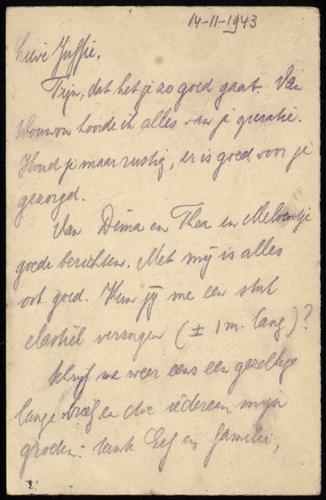 14-11-1943
Lieve Juffie,
Fijn, dat het je zo goed gaat. Van
Wouwon hoorde ik alles van je operatie.
Houd je maar rustig, er is goed voor je
gezorgd.
Van Dima en Thea en
goede berichten. Met mij is alles
ook goed. Kun jij me een stuk
elastiek verzorgen (± 1 m. lang)?
Schrijf me weer eens een gezellige
lange brief en doe iedereen mijn
groeten: tante Eef en familie,